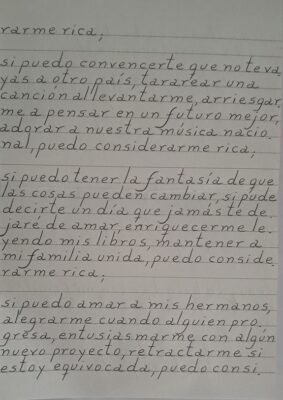 rarme rica;
si puedo convencerte que no te va
yas a otro país, tararear una
canción al levantarme, arriesgar
me a pensar en un futuro mejor,
adorar a nuestra música nacio.
nal, puedo considerarme rica;
si puedo tener la fantasía de que
las cosas pueden cambiar, si pude
decirte un día que jamás te de.
jare de amar, enriquecerme le.
yendo mis libros, mantener a
mi familia unida, puedo conside.
rarme rica;
si puedo amar a mis hermanos,
alegrarme cuando alguien pro.
gresa, entusiasmarme con algún
nuevo proyecto, retractarme si
estoy equivocada, puedo consi.